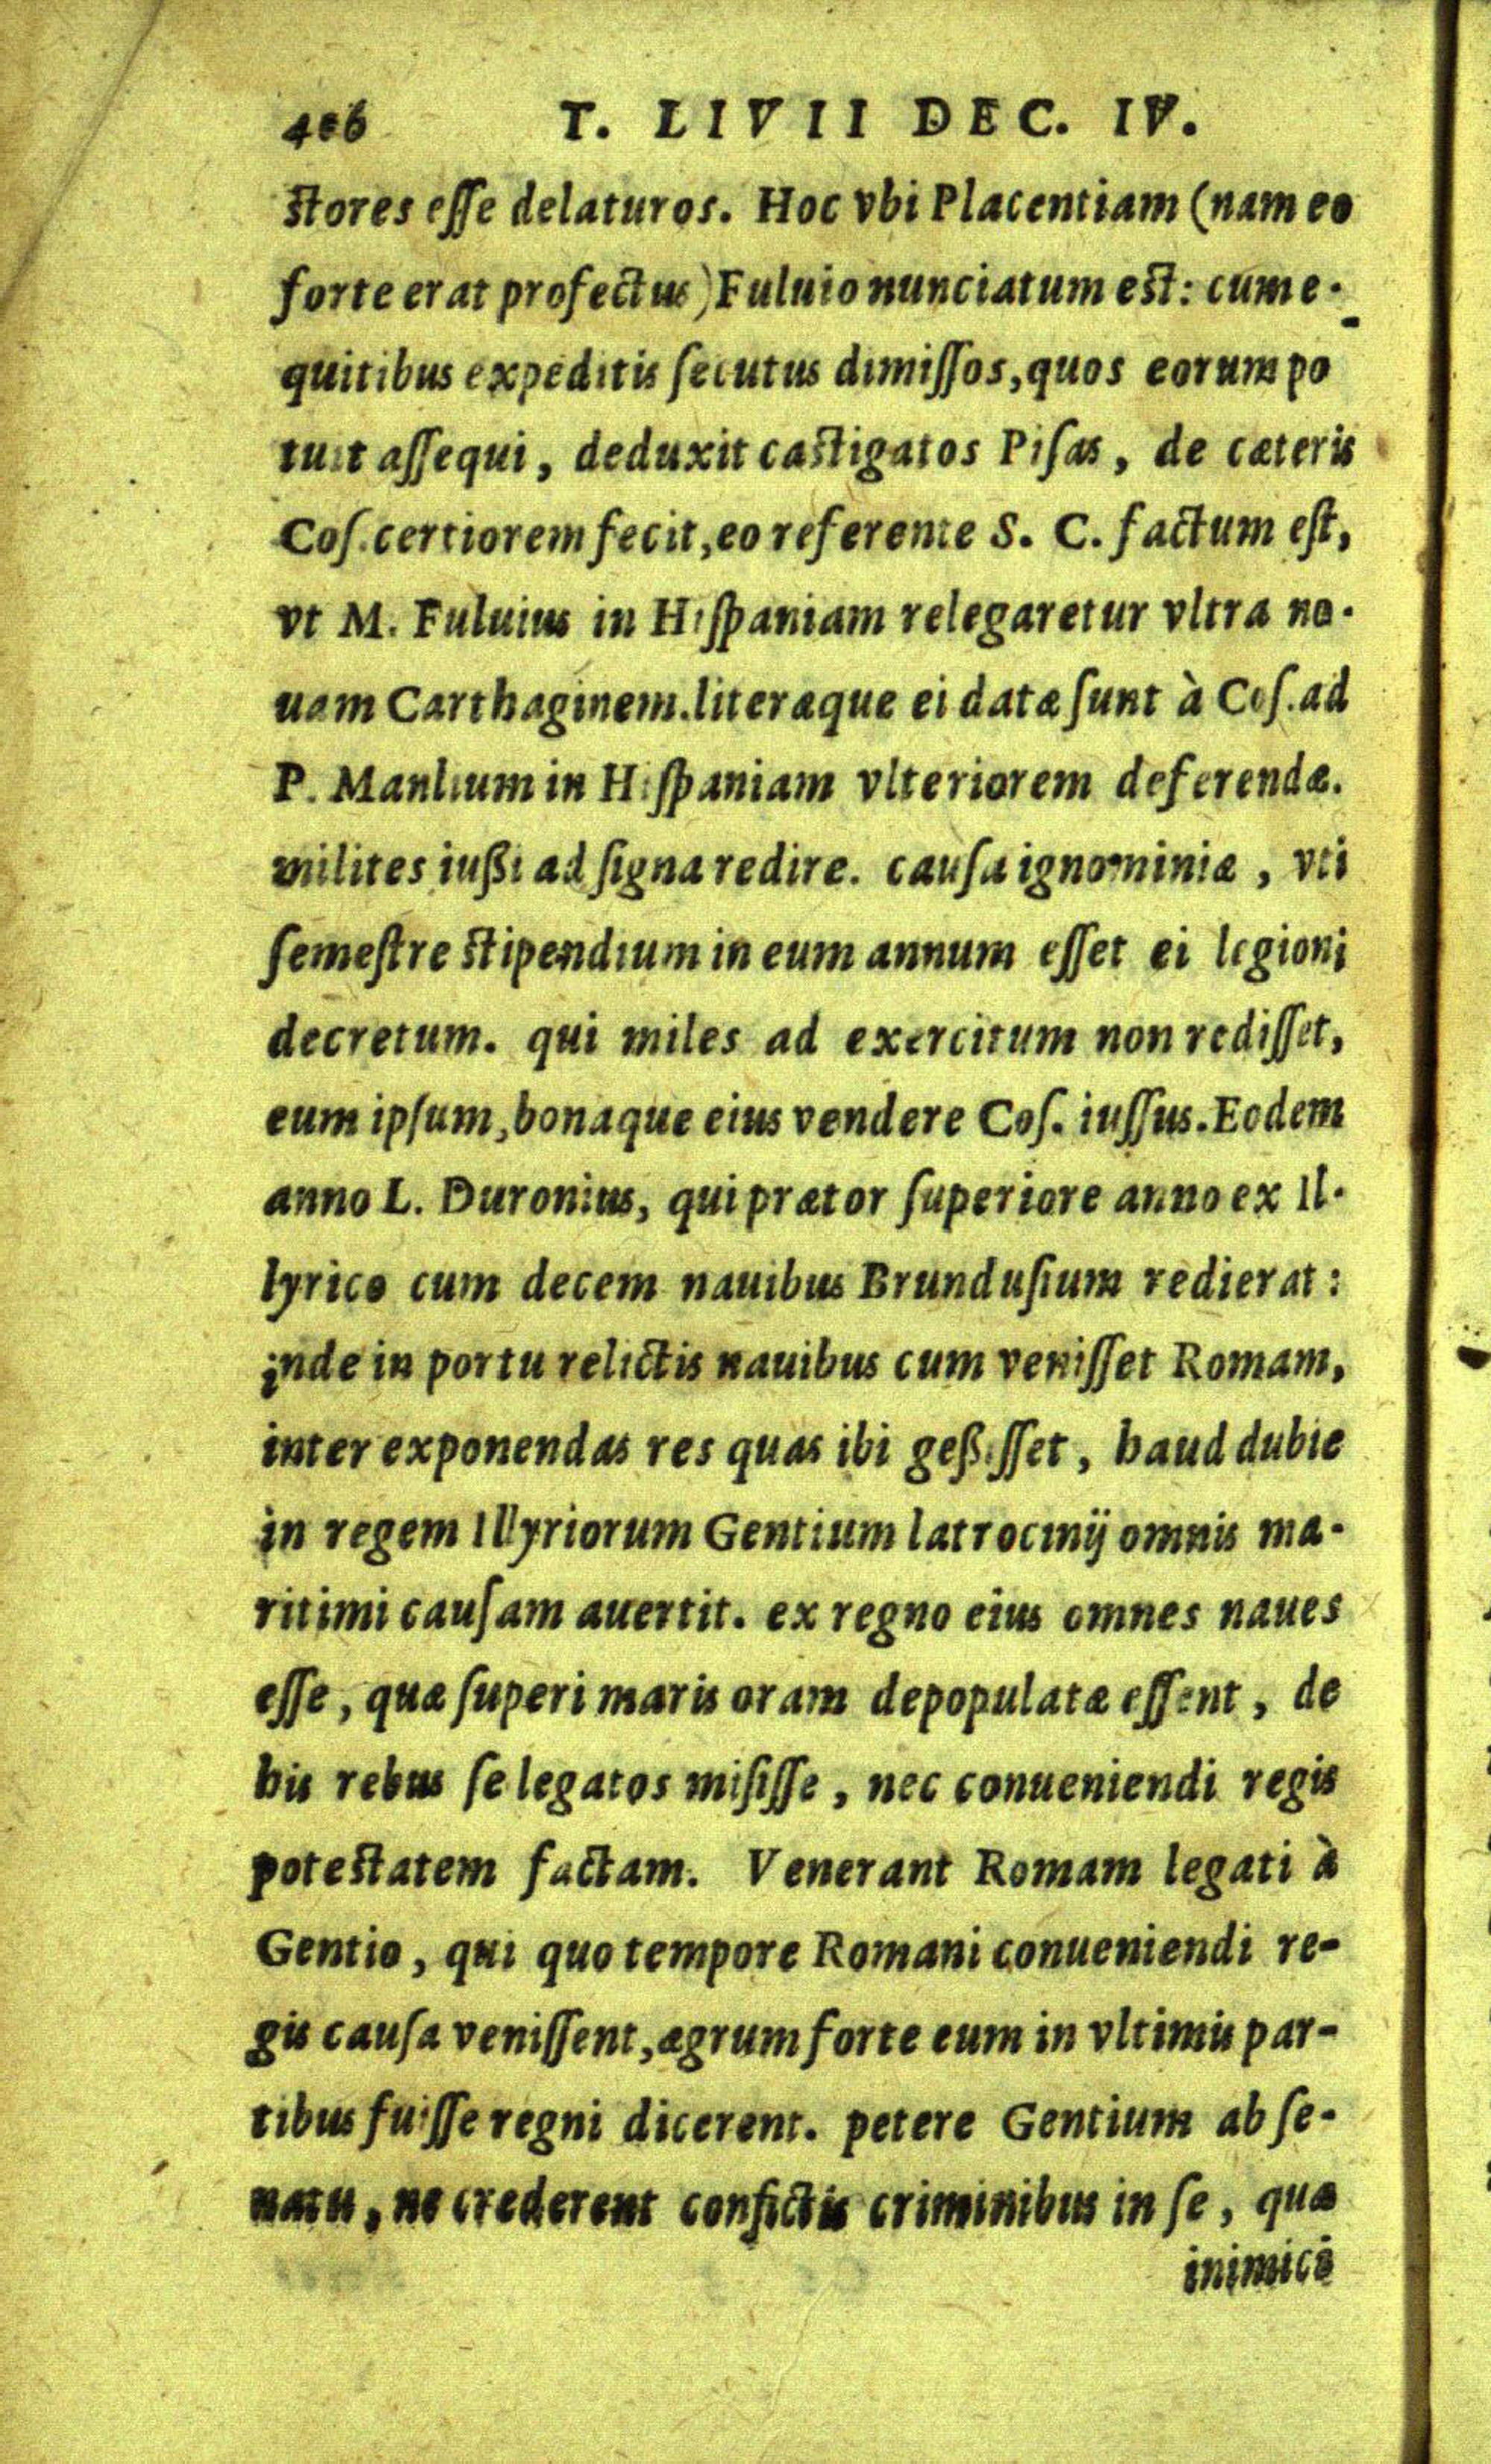 406 T. LIVII DEC. IV.
ſtores eſſe delaturos. Hoc vbi Placentiam (nam eo
forte erat profectus) Fuluio nunciatum eſt: cum e-
quitibus expeditis ſecutus dimiſſos, quos eorum po
tuit aſſequi, deduxit caſtigatos Piſas, de cæteris
Coſ. certiorem fecit, eo referente S. C. factum eſt,
vt M. Fuluius in Hiſpaniam relegaretur vltra no-
uam Carthaginem. literæque ei datæ ſunt à Coſ. ad
P. Manlium in Hiſpaniam vlteriorem deferendæ.
milites iußi ad ſigna redire. cauſa ignominiæ, vti
ſemeſtre ſtipendium in eum annum eſſet ei legioni
decretum. qui miles ad exercitum non rediſſet,
eum ipſum, bonaque eius vendere Coſ. iuſſus. Eodem
anno L. Duronius, qui prætor ſuperiore anno ex Il-
lyrico cum decem nauibus Brunduſium redierat:
inde in portu relictis nauibus cum veniſſet Romam,
inter exponendas res quas ibi geßiſſet, haud dubie
in regem Illyriorum Gentium latrocinij omnis ma-
ritimi cauſam auertit. ex regno eius omnes naues
eſſe, quæ ſuperi maris oram depopulatæ eſſent, de
his rebus ſe legatos miſiſſe, nec conueniendi regis
poteſtatem factam. Venerant Romam legati à
Gentio, qui quo tempore Romani conueniendi re-
gis cauſa veniſſent, ægrum forte eum in vltimis par-
tibus fuiſſe regni dicerent. petere Gentium ab ſe-
natu, ne crederent confictis criminibus in ſe, quæ
inimici